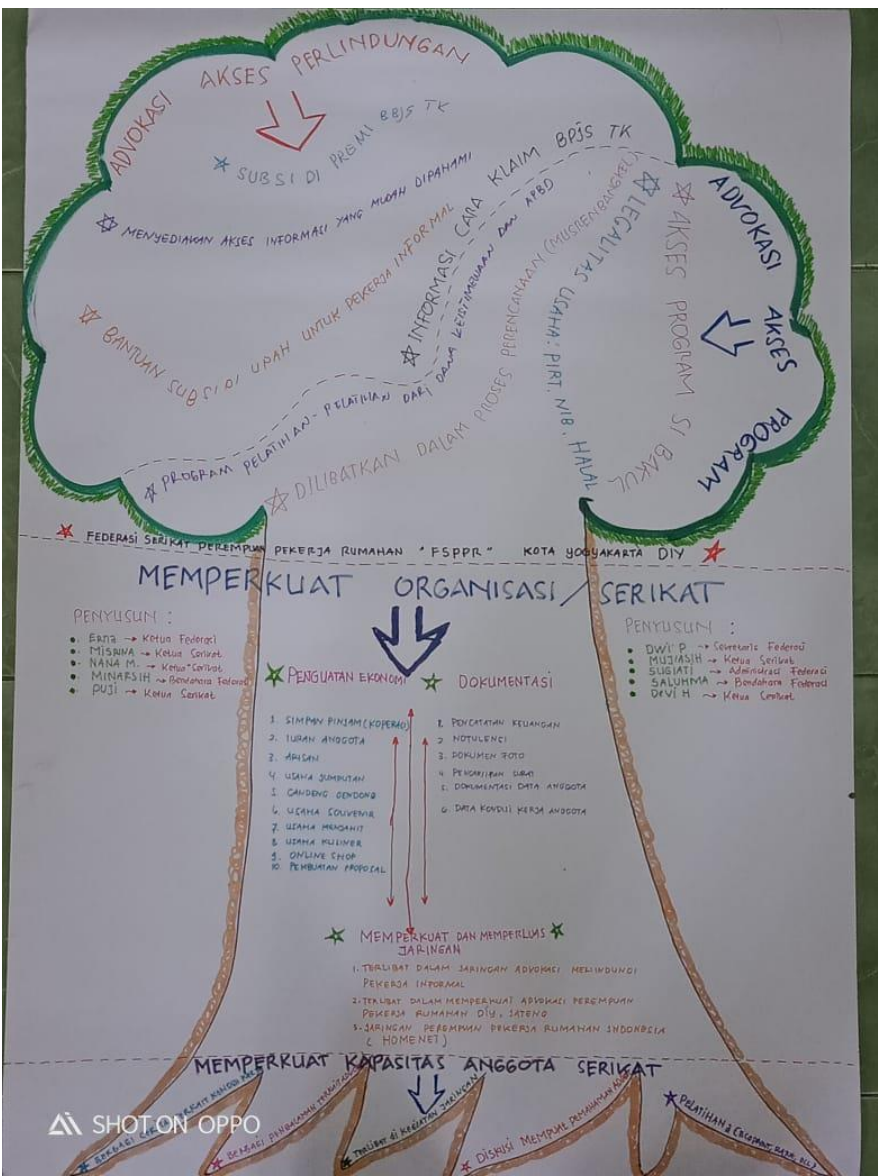 ADVOKASI AKSES PERLINDUNGAN
SUBSIDI PREMI BBJS TK
MENYEDIAKAN AKSES INFORMASI YANG MUDAH DIPAHAMI
BANTUAN SUBSIDI UPAH UNTUK PEKERJA INFORMAL
INFORMASI CARA KLAIM BPJS TK
PROGRAM PELATIHAN-PELATIHAN DARI DANA KEISTIMEWAAN DAN APBD
DILIBATKAN DALAM PROSES PERENCANAAN (MUSRENBANGKEL)
LEGALITAS USAHA: PIRT, NIB, HALAL
AKSES PROGRAM SI BAKUL
ADVOKASI AKSES PROGRAM
FEDERASI SERIKAT PEREMPUAN PEKERJA RUMAHAN "FSPPR" KOTA YOGYAKARTA DIY
MEMPERKUAT ORGANISASI / SERIKAT
PENYUSUN :
ERNA → Ketua Federasi
MISRINA → Ketua Serikat
NANA M. → Ketua Serikat
MINARSIH → Bendahara Federasi
PUJI → Ketua Serikat
PENYUSUN :
DWI P → Sekretaris Federasi
MUJIASIH → Ketua Serikat
SUGIATI → Administrasi Federasi
SALUHMA → Bendahara Federasi
DEVI H → Ketua Serikat
PENGUATAN EKONOMI
1. SIMPAN PINJAM (KOPERASI)
2. IURAN ANGGOTA
3. ARISAN
4. USAHA JUMPUTAN
5. GANDENG GENDONG
6. USAHA SOUVENIR
7. USAHA MENJAHIT
8. USAHA KULINER
9. ONLINE SHOP
10. PEMBUATAN PROPOSAL
DOKUMENTASI
1. PENCATATAN KEUANGAN
2. NOTULENSI
3. DOKUMEN FOTO
4. PENGARSIPAN SURAT
5. DOKUMENTASI DATA ANGGOTA
6. DATA KONDISI KERJA ANGGOTA
MEMPERKUAT DAN MEMPERLUAS
JARINGAN
1. TERLIBAT DALAM JARINGAN ADVOKASI MELINDUNGI
PEKERJA INFORMAL
2. TERLIBAT DALAM MEMPERKUAT ADVOKASI PEREMPUAN
PEKERJA RUMAHAN DIY, JATENG
3. JARINGAN PEREMPUAN PEKERJA RUMAHAN INDONESIA
(HOMENET)
MEMPERKUAT KAPASITAS ANGGOTA SERIKAT
BERBAGI CERITA TERKAIT KONDISI
BERBAGI PENGALAMAN TERKAIT
TERLIBAT DI KEGIATAN JARINGAN
DISKUSI MEMPUAT PEMAHAMAN
PELATIHAN2
SHOT ON OPPO